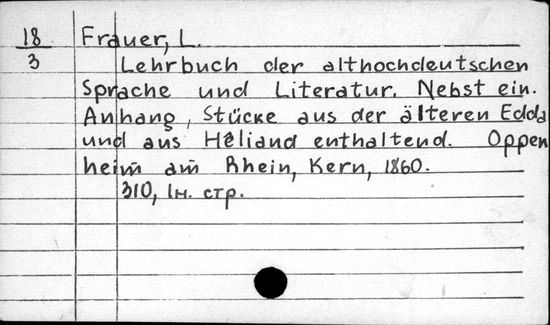 18
3
Frauer, L.
Lehrbuch der althochdeutschen
Sprache und Literatur. Nebst ein.
Anhang, Stücke aus der älteren Edda
und aus Hêliand enthaltend. Oppen
heim am Rhein, Kern, 1860.
310, 1н. стр.